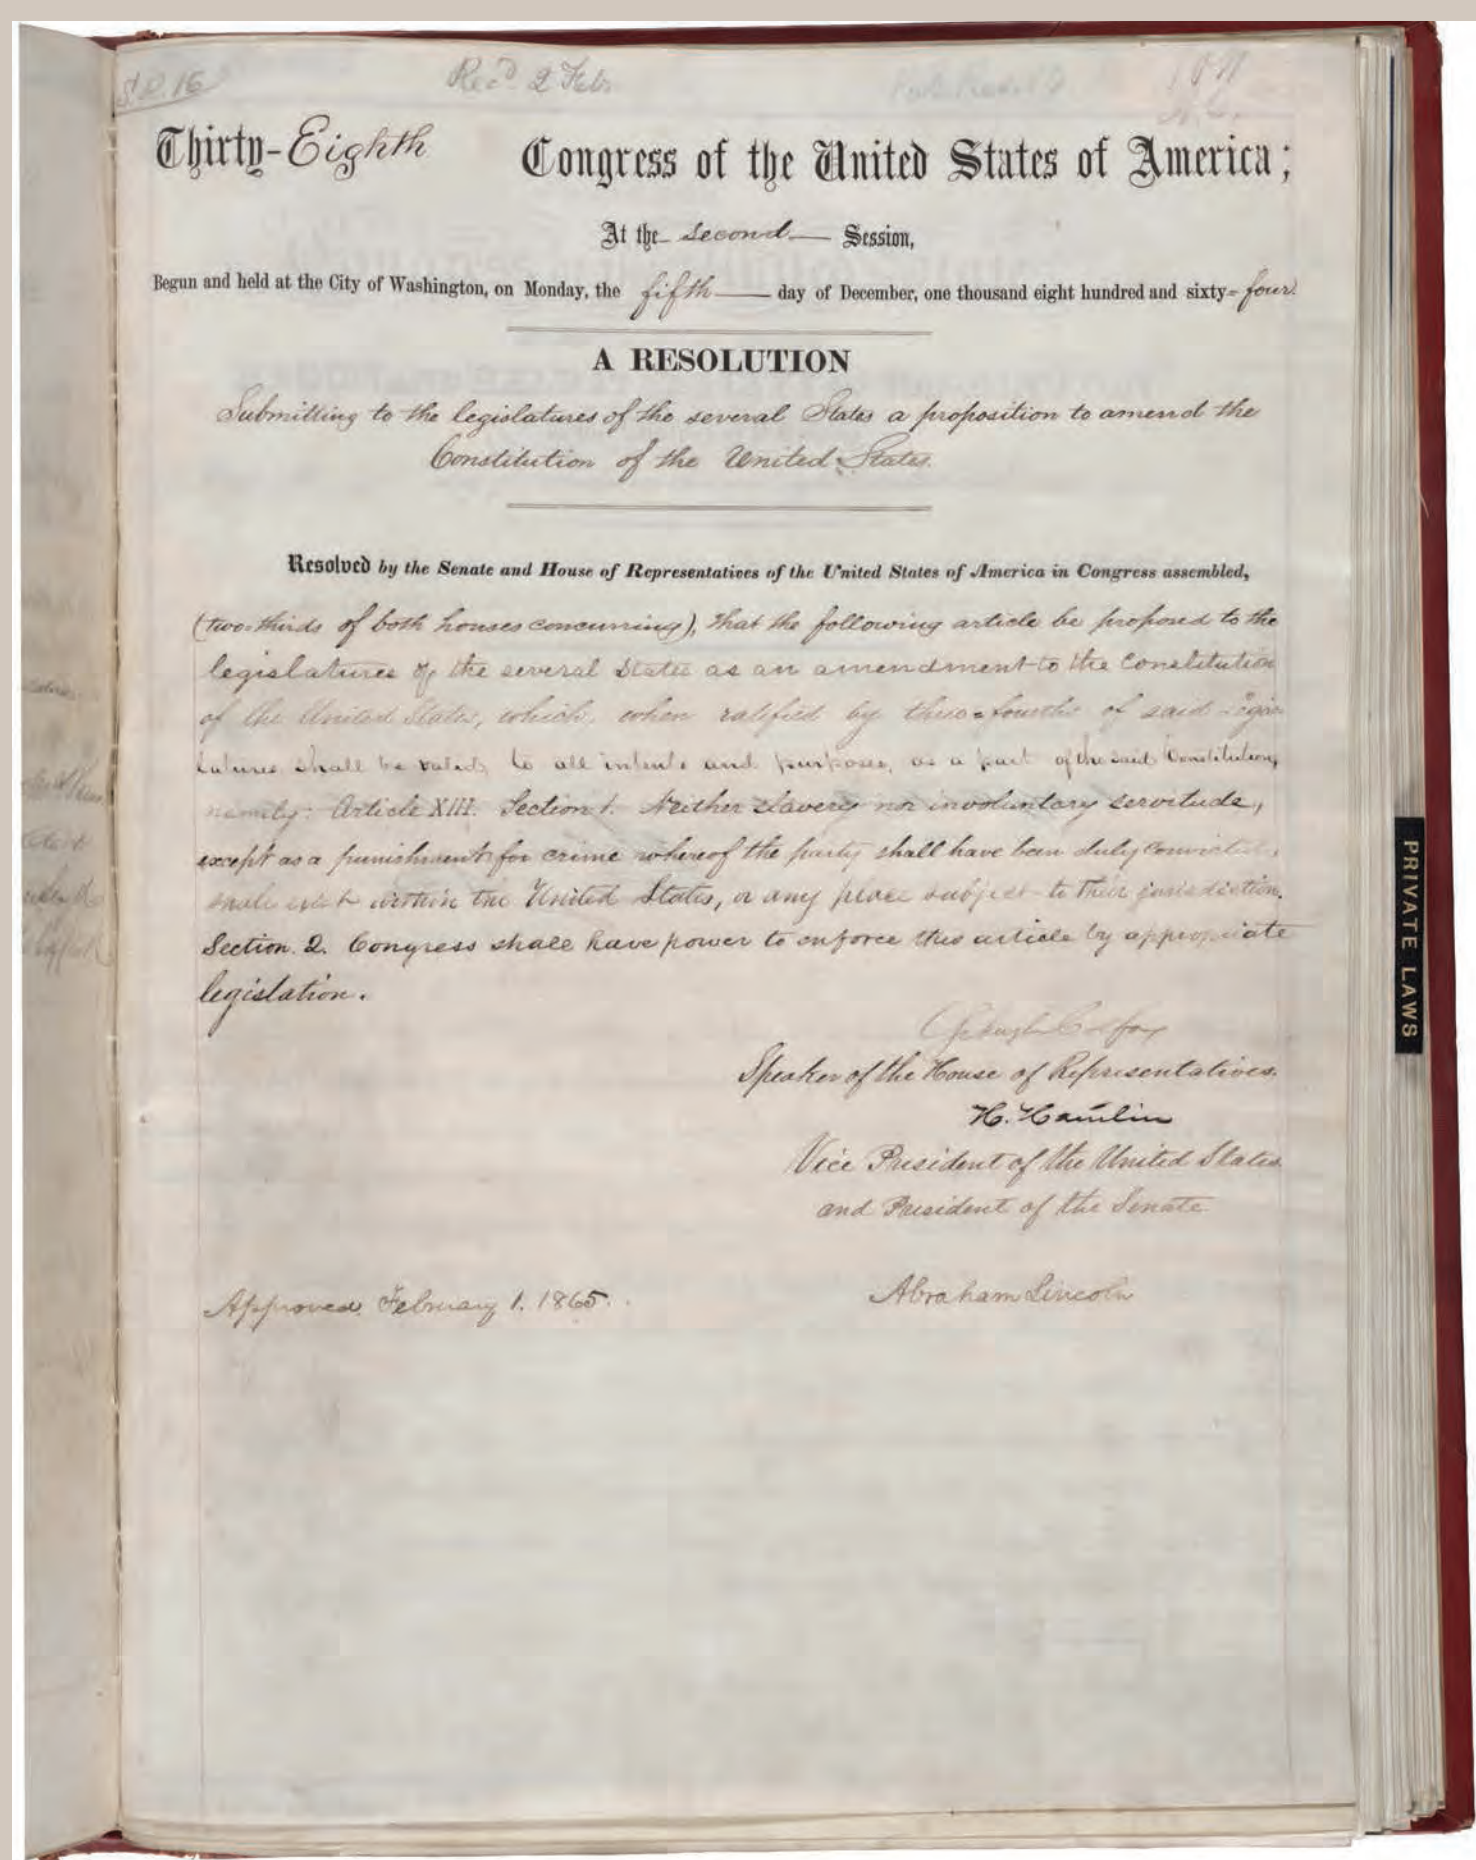 S.R. 16
Rec'd 2 Feb.
Thirty-Eighth Congress of the United States of America;
At the second Session,
Begun and held at the City of Washington, on Monday, the fifth day of December, one thousand eight hundred and sixty-four.
A RESOLUTION
Submitting to the legislatures of the several States a proposition to amend the
Constitution of the United States.
Resolved by the Senate and House of Representatives of the United States of America in Congress assembled,
(two-thirds of both houses concurring), that the following article be proposed to the
legislatures of the several States as an amendment to the Constitution
of the United States, which, when ratified by three-fourths of said Legis-
latures shall be valid, to all intents and purposes, as a part of the said Constitution,
namely: Article XIII. Section 1. Neither slavery nor involuntary servitude,
except as a punishment for crime whereof the party shall have been duly convicted,
shall exist within the United States, or any place subject to their jurisdiction.
Section. 2. Congress shall have power to enforce this article by appropriate
legislation.
Schuyler Colfax
Speaker of the House of Representatives.
H. Hamlin
Vice President of the United States
and President of the Senate
Approved, February 1. 1865.
Abraham Lincoln
PRIVATE LAWS